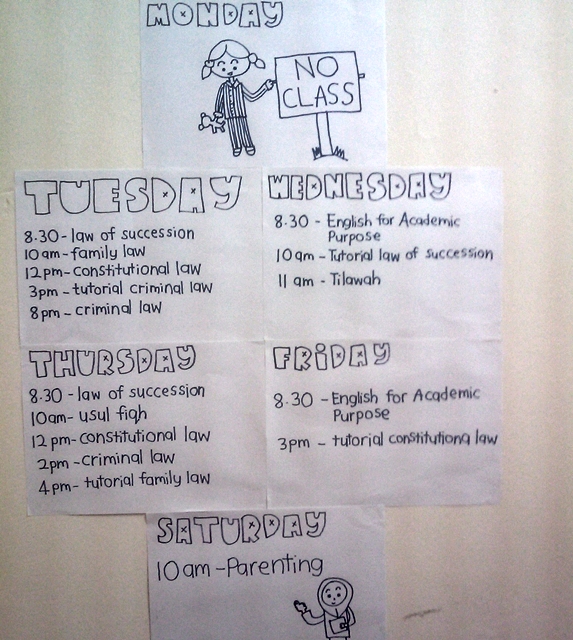 MONDAY
NO
CLASS
TUESDAY
8.30 - law of succession
10 am - family law
12 pm - constitutional law
3 pm - tutorial criminal law
8 pm - criminal law
WEDNESDAY
8.30 - English for Academic
Purpose
10 am - Tutorial law of succession
11 am - Tilawah
THURSDAY
8.30 - law of succession
10am - usul fiqh
12 pm - constitutional law
2pm - criminal law
4 pm - tutorial family law
FRIDAY
8.30 - English for Academic
Purpose
3pm - tutorial constitutiona law
SATURDAY
10 am - Parenting